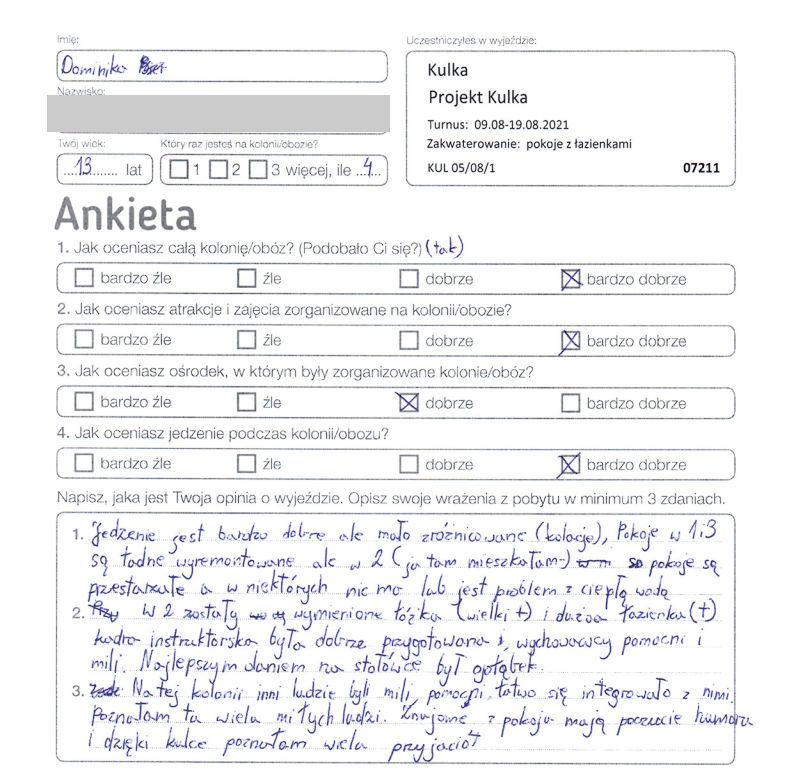 Imię:
Uczestniczyłeś w wyjeździe:
Dominika
Kulka
Projekt Kulka
Nazwisko:
Turnus: 09.08-19.08.2021
Zakwaterowanie: pokoje z łazienkami
KUL 05/08/1
07211
Twój wiek:
Który raz jesteś na kolonii/obozie?
13 lat
1 2 3 więcej, ile 4
Ankieta
1. Jak oceniasz całą kolonię/obóz? (Podobało Ci się?) (tak)
bardzo źle źle dobrze bardzo dobrze
2. Jak oceniasz atrakcje i zajęcia zorganizowane na kolonii/obozie?
bardzo źle źle dobrze bardzo dobrze
3. Jak oceniasz ośrodek, w którym były zorganizowane kolonie/obóz?
bardzo źle źle dobrze bardzo dobrze
4. Jak oceniasz jedzenie podczas kolonii/obozu?
bardzo źle źle dobrze bardzo dobrze
Napisz, jaka jest Twoja opinia o wyjeździe. Opisz swoje wrażenia z pobytu w minimum 3 zdaniach.
1. Jedzenie jest bardzo dobre ale mało zróżnicowane (kolacje), Pokoje w 1i3
są ładne wyremontowane ale w 2 (ja tam mieszkałam-) pokoje są
przestarzałe a w niektórych nie ma lub jest problem z ciepłą wodą
2. W 2 zostały wymienione łóżka (wielki +) i duża łazienka (+)
kadra instruktorska była dobrze przygotowana, wychowawcy pomocni i
mili. Najlepszym daniem na stołówce był gołąbek.
3. Na tej kolonii inni ludzie byli mili, pomocni, łatwo się integrowało z nimi.
Poznałam tu wielu miłych ludzi. Znajome z pokoju mają poczucie humoru
i dzięki kulce poznałam wielu przyjaciół